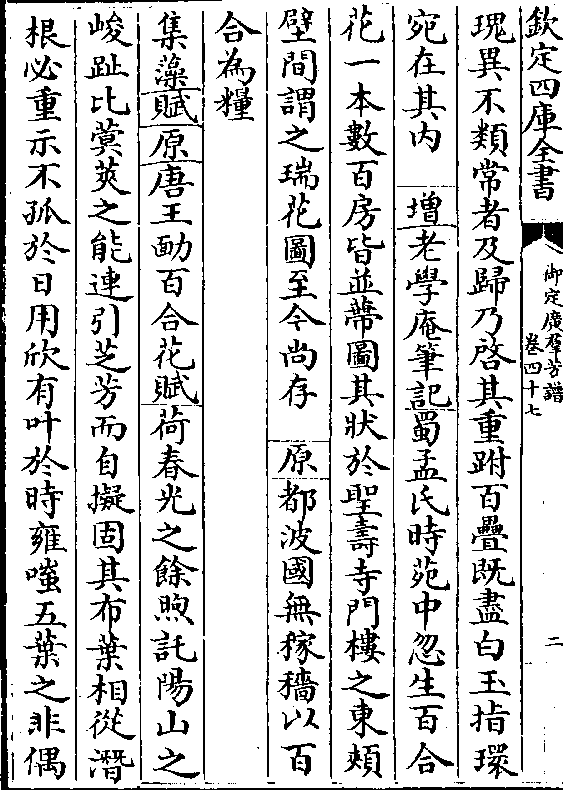 欽定四庫全書
御定廣羣芳譜
卷四十七
二
瑰異不類常者及歸乃啓其重跗百疊既盡白玉指環
宛在其内 增老學庵筆記蜀孟氏時苑中忽生百合
花一本數百房皆並蔕圖其狀於聖壽寺門樓之東頰
壁間謂之瑞花圖至今尚存 原都波國無稼穡以百
合為糧
集藻賦原唐王勔百合花賦荷春光之餘煦託陽山之
峻趾比蓂莢之能連引芝芳而自擬固其布葉相從潛
根必重示不孤於日用欣有叶於時雍嗤五葉之非偶